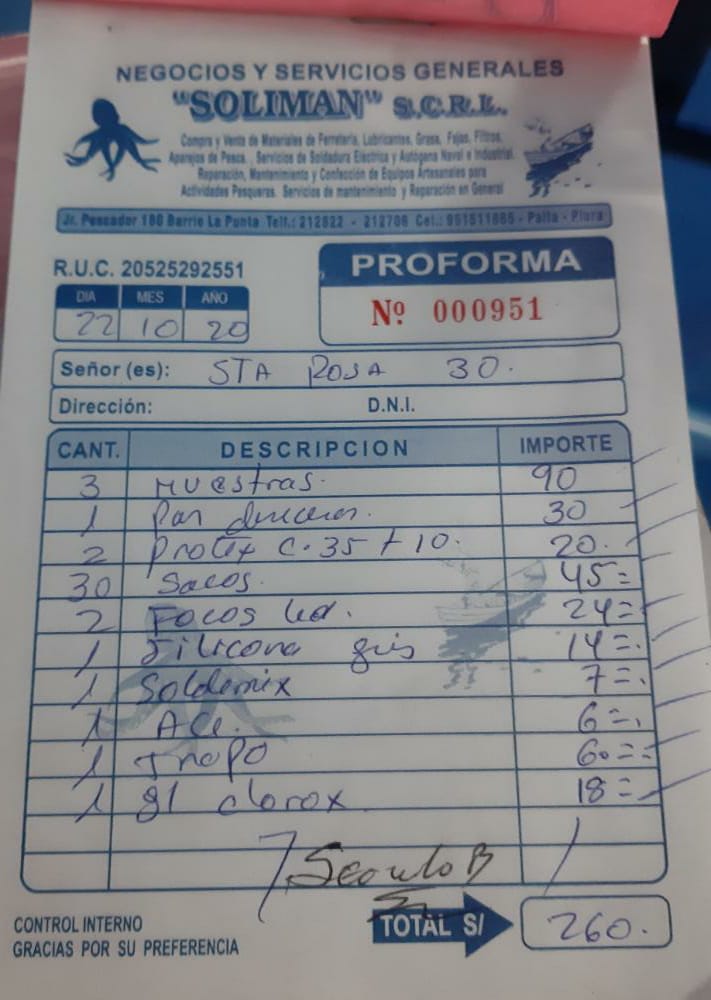 NEGOCIOS Y SERVICIOS GENERALES
"SOLIMAN" S.C.R.L.
Compra y Venta de Materiales de Ferretería, Lubricantes, Grasa, Fajas, Filtros,
Aparejos de Pesca, Servicios de Soldadura Eléctrica y Autógena Naval e Industrial,
Reparación, Mantenimiento y Confección de Equipos Artesanales para
Actividades Pesqueras. Servicios de mantenimiento y Reparación en General
Jr. Pescador 180 Barrio La Punta Telf.: 212822 - 212706 Cel.: - Paita - Piura
R.U.C. 20525292551
PROFORMA
DIA MES AÑO
Nº 000951
22 10 20
Señor (es): STA ROSA 30.
Dirección: D.N.I.
CANT. DESCRIPCION IMPORTE
3 Muestras. 90
1 Par 30
2 Protex C. 35 + 10. 20.
30 Sacos. 45=
2 Focos led. 24=
1 Silicona gris 14=.
1 Soldemix 7=.
1 Ace. 6=.
1 Trapo 6.==
1 gl clorox 18=
CONTROL INTERNO
GRACIAS POR SU PREFERENCIA
TOTAL S/ 260.